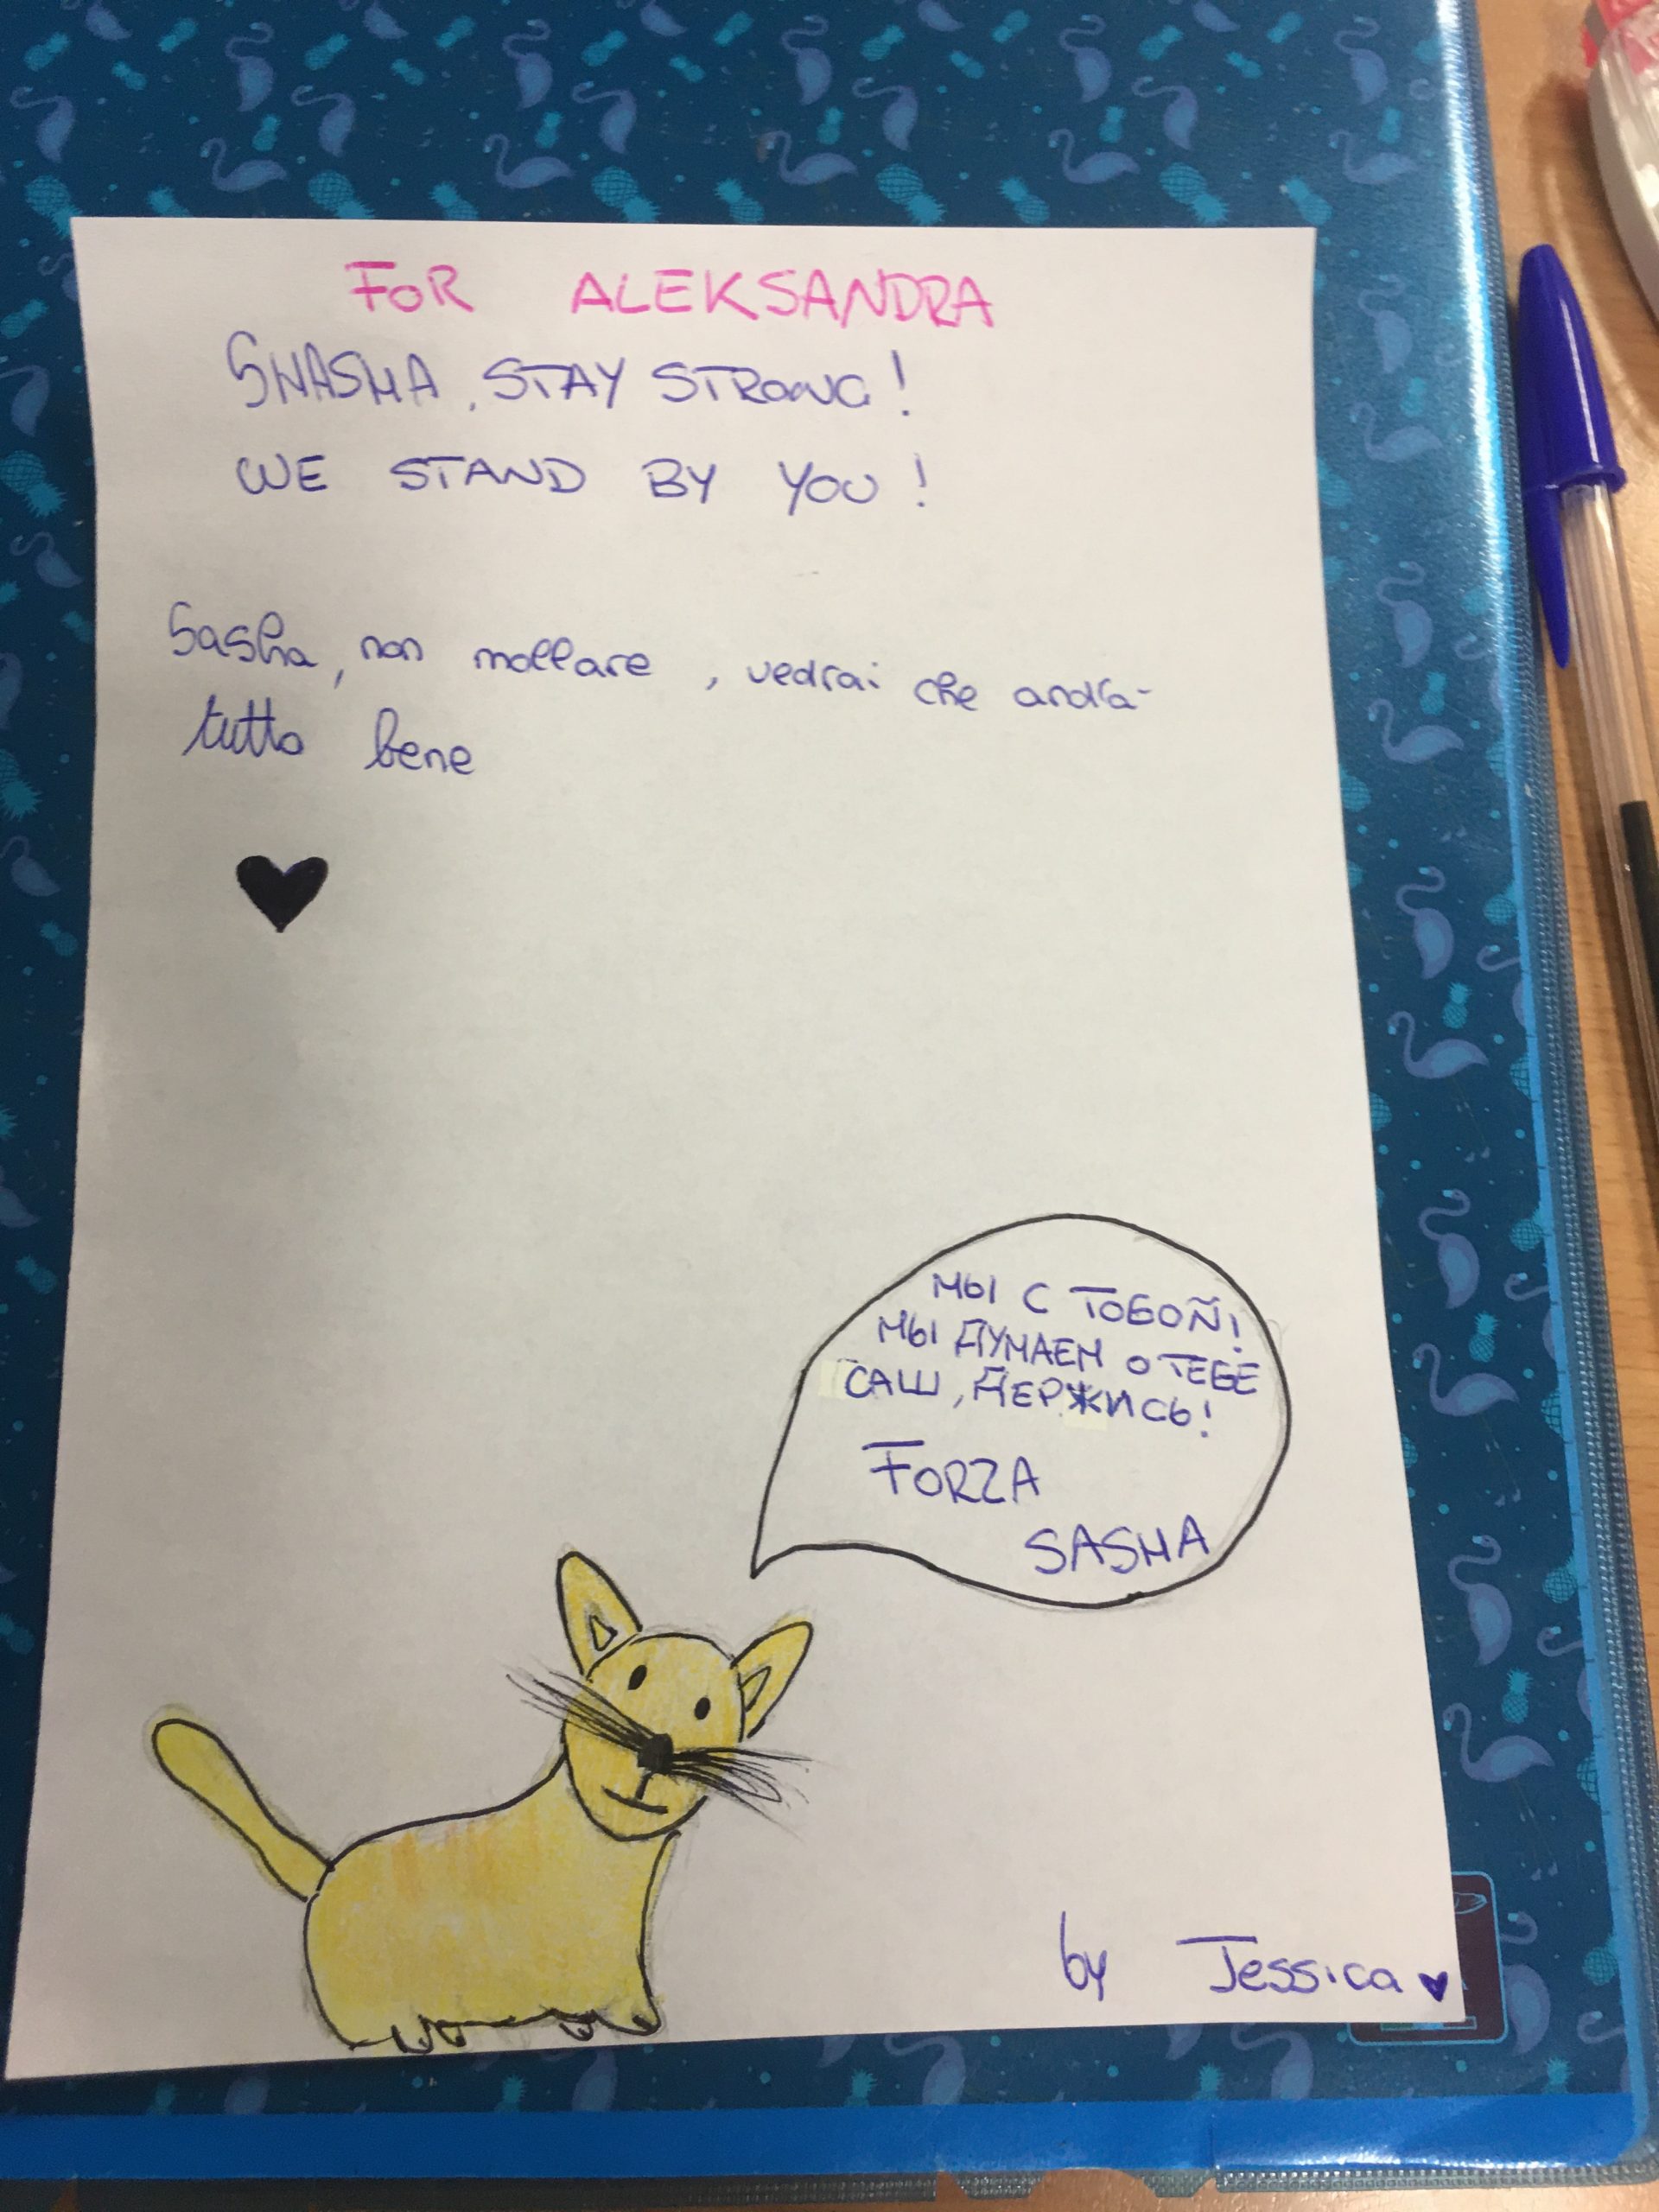 FOR ALEKSANDRA
SHASHA, STAY STRONG!
WE STAND BY YOU!
Sasha, non mollare, vedrai che andrà
tutto bene
МЫ С ТОБОЙ!
МЫ ДУМАЕМ О ТЕБЕ
САШ, ДЕРЖИСЬ!
FORZA
SASHA
by Jessica